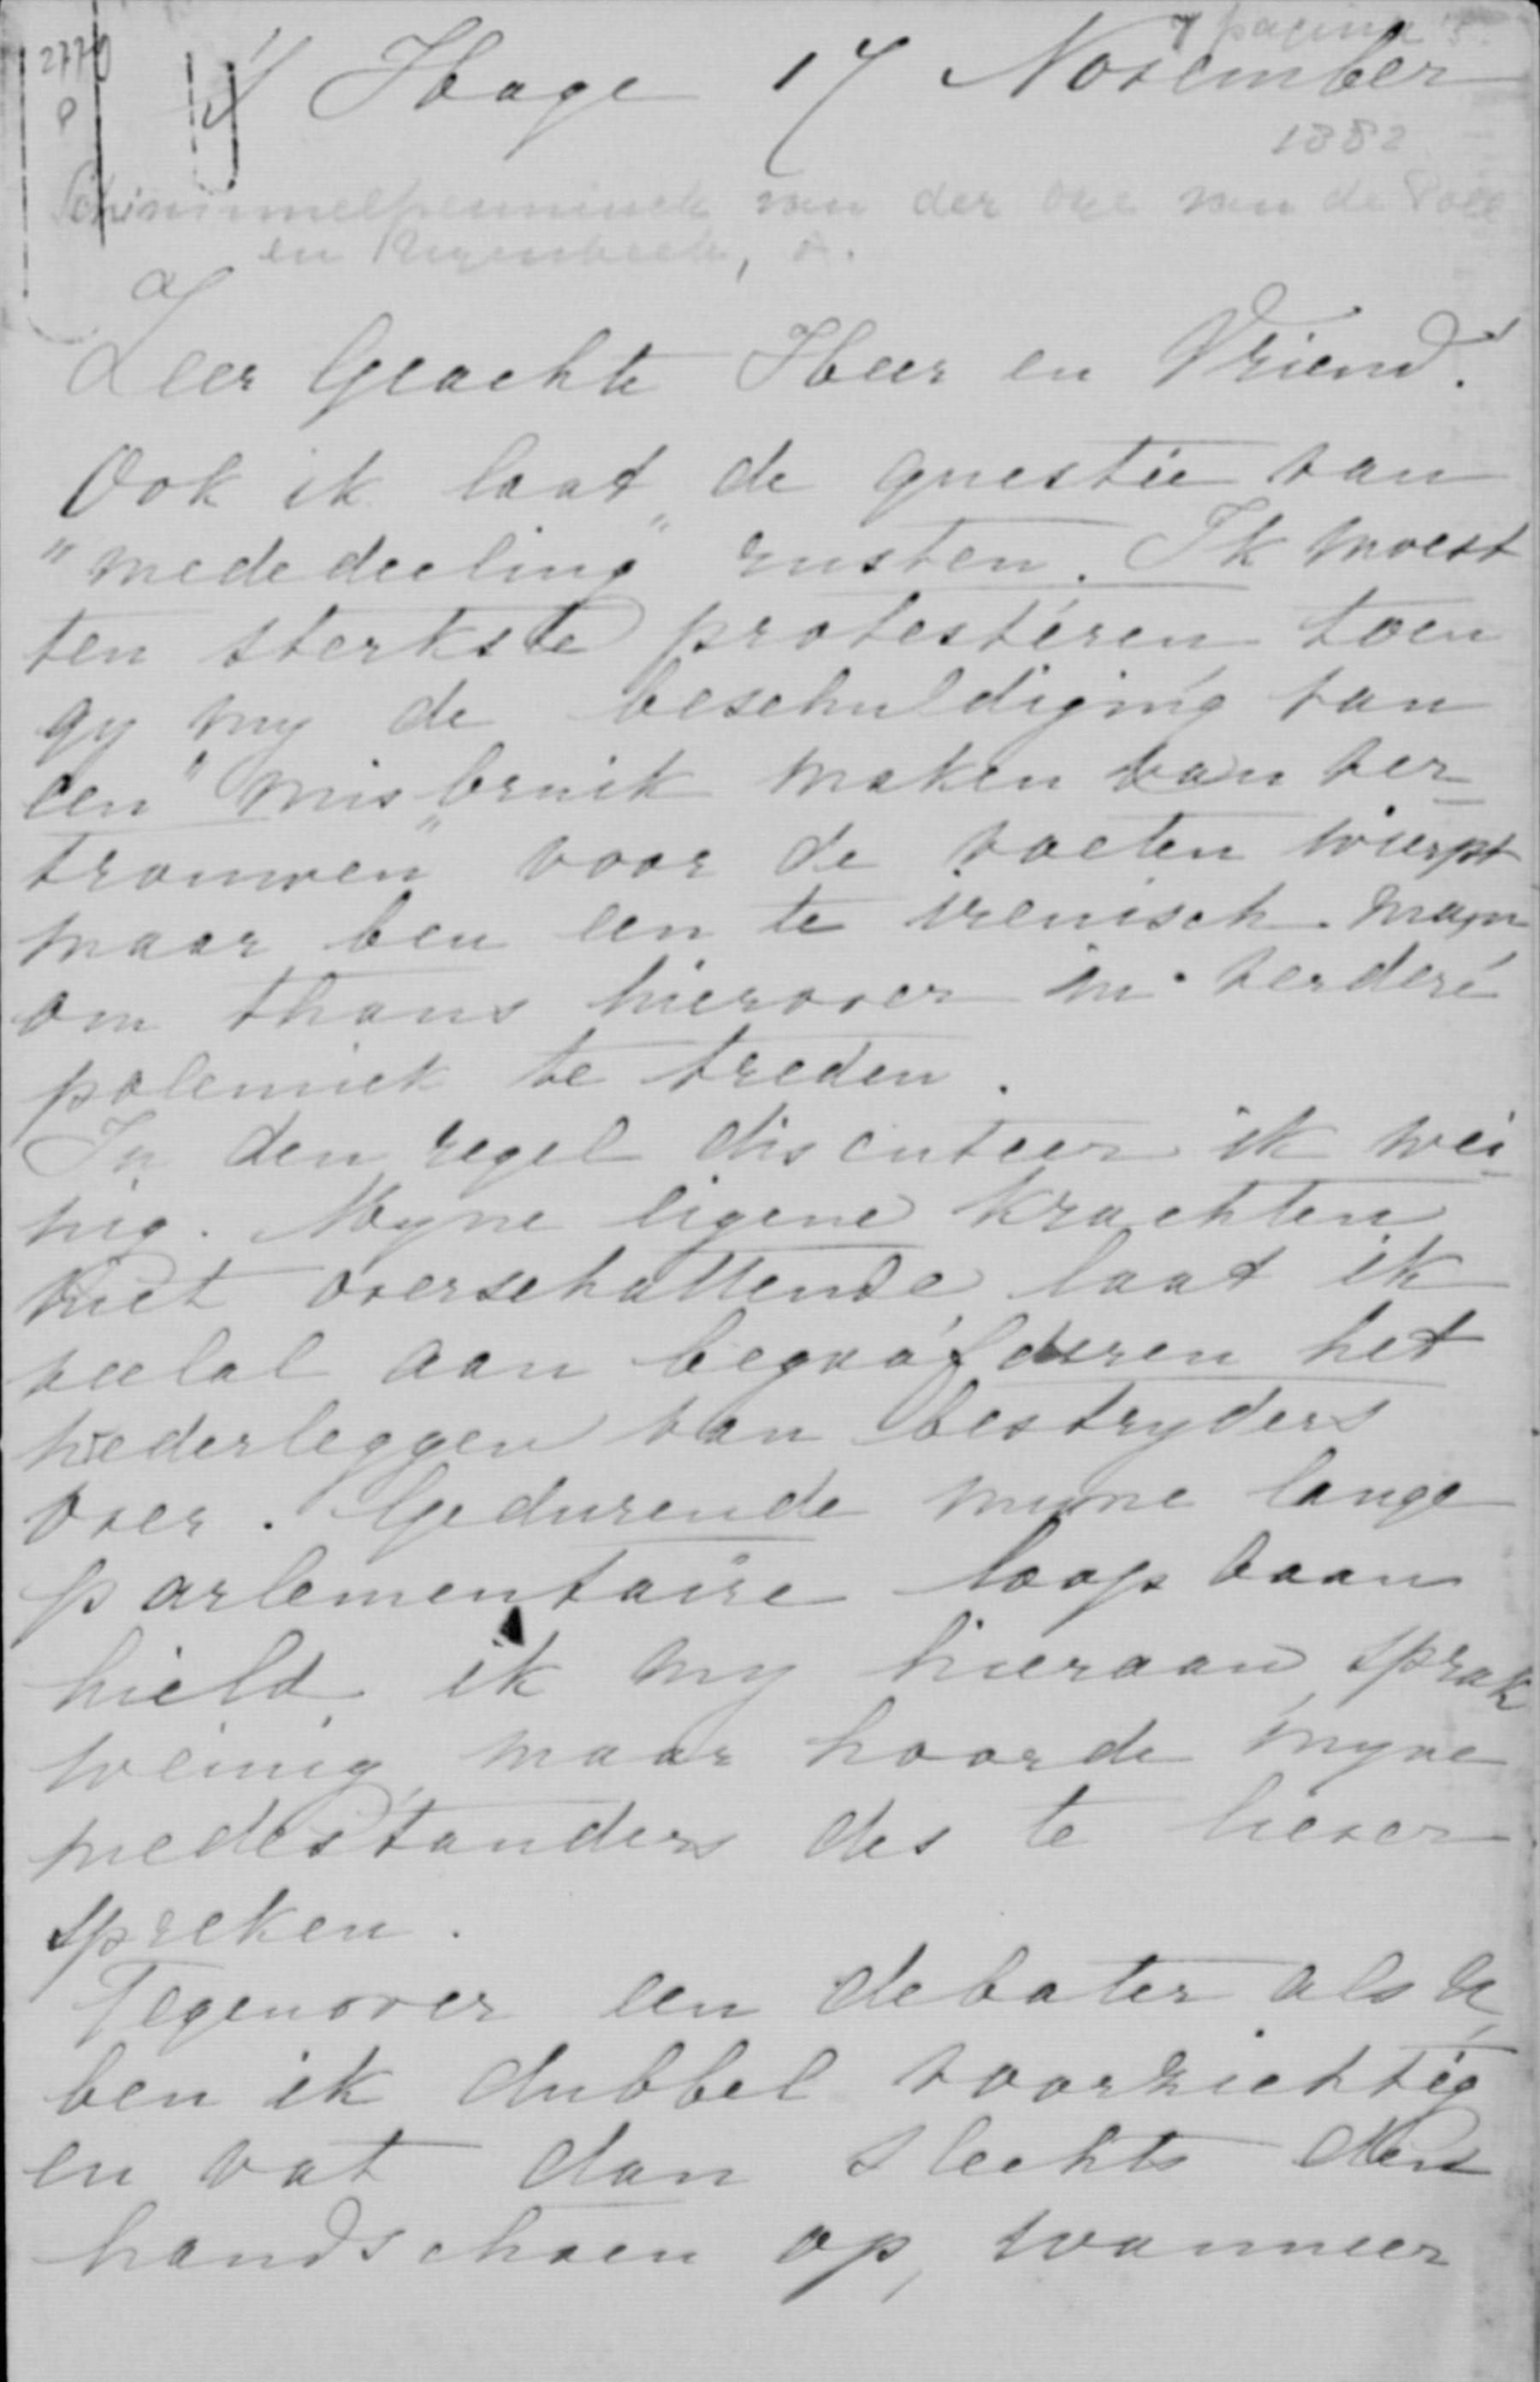 7 pagina's.
2770
P
's Hage 17 November
1882
Schimmelpenninck van der Oye van de Poll
en Nijenbeek, A.
Zeer Geachte Heer en Vriend.
Ook ik laat de questie van
"mededeeling" rusten. Ik moest
ten sterkste protestéren toen
gy my de beschuldiging van
een "misbruik maken van ver-
trouwen" voor de voeten wierpt
maar ben een te irenisch man
om thans hierover in verdere
polemiek te treden.
In den regel discuteer ik wei-
nig. Myne eigene krachten
niet overschattende laat ik
veelal aan begaafderen het
nederleggen van bestryders
over. Gedurende myne lange
parlementaire loopbaan
hield ik my hieraan, sprak
weinig, maar hoorde myne
medestanders des te liever
spreken.
Tegenover een debater als U
ben ik dubbel voorzichtig
en vat dan slechts den
handschoen op, wanneer